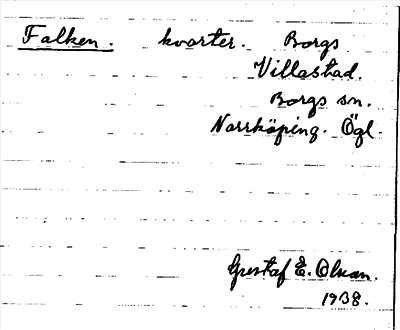 Falken. kvarter. Borgs
Villastad.
Borgs sn.
Norrköping. Ögl.
Gustaf E. Olsson.
1938.